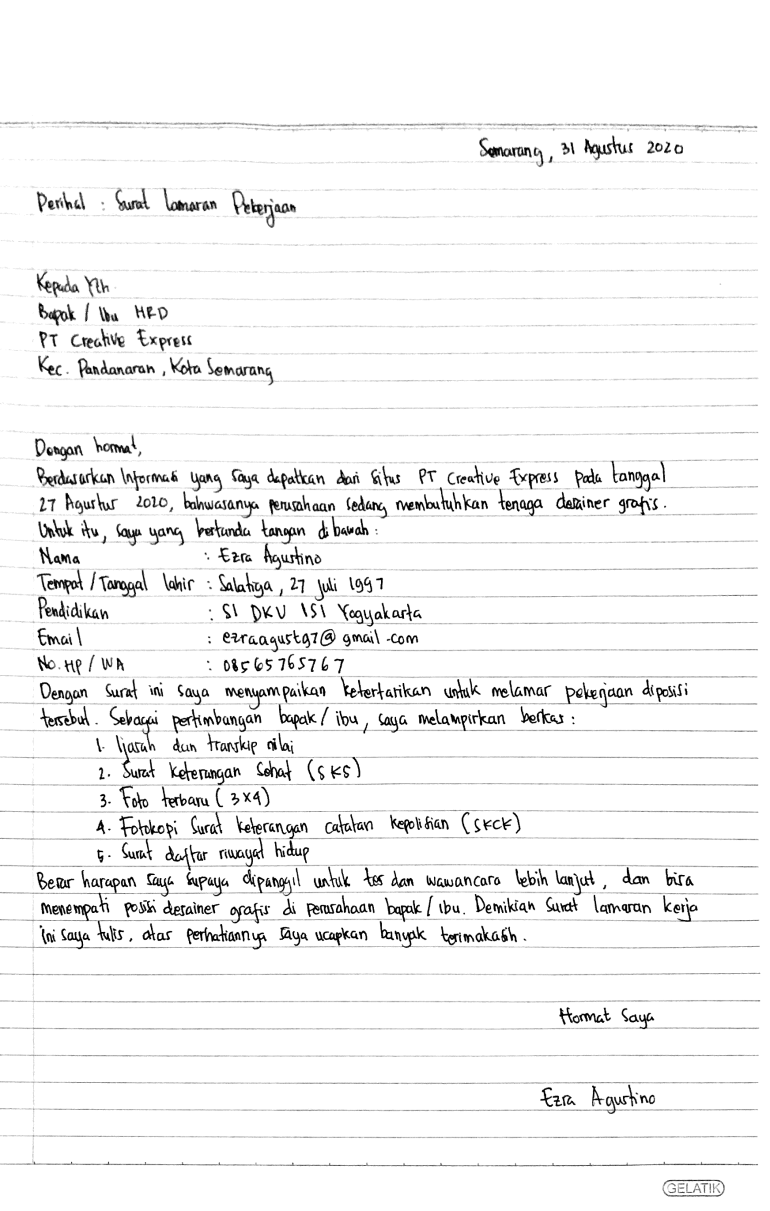 Semarang, 31 Agustus 2020
Perihal : Surat lamaran Pekerjaan
Kepada Yth
Bapak / Ibu HRD
PT Creative Express
Kec. Pandanaran, Kota Semarang
Dengan hormat,
Berdasarkan Informasi yang saya dapatkan dari situs PT Creative Express pada tanggal
27 Agustus 2020, bahwasanya perusahaan sedang membutuhkan tenaga desainer grafis.
Untuk itu, saya yang bertanda tangan dibawah :
Nama : Ezra Agustino
Tempat / Tanggal lahir : Salatiga, 27 Juli 1997
Pendidikan : S1 DKV ISI Yogyakarta
Email : ezraagust97@gmail.com
No. HP / WA : 08565765767
Dengan surat ini saya menyampaikan ketertarikan untuk melamar pekerjaan diposisi
tersebut. Sebagai pertimbangan bapak / ibu, saya melampirkan berkas :
1. Ijasah dan transkip nilai
2. Surat keterangan Sehat (SKS)
3. Foto terbaru (3x4)
4. Fotokopi Surat keterangan catatan kepolisian (SKCK)
5. Surat daftar riwayat hidup
Besar harapan saya supaya dipanggil untuk tes dan wawancara lebih lanjut, dan bisa
menempati posisi desainer grafis di perusahaan bapak / ibu. Demikian surat lamaran kerja
ini saya tulis, atas perhatiannya saya ucapkan banyak terimakasih.
Hormat Saya
Ezra Agustino
GELATIK